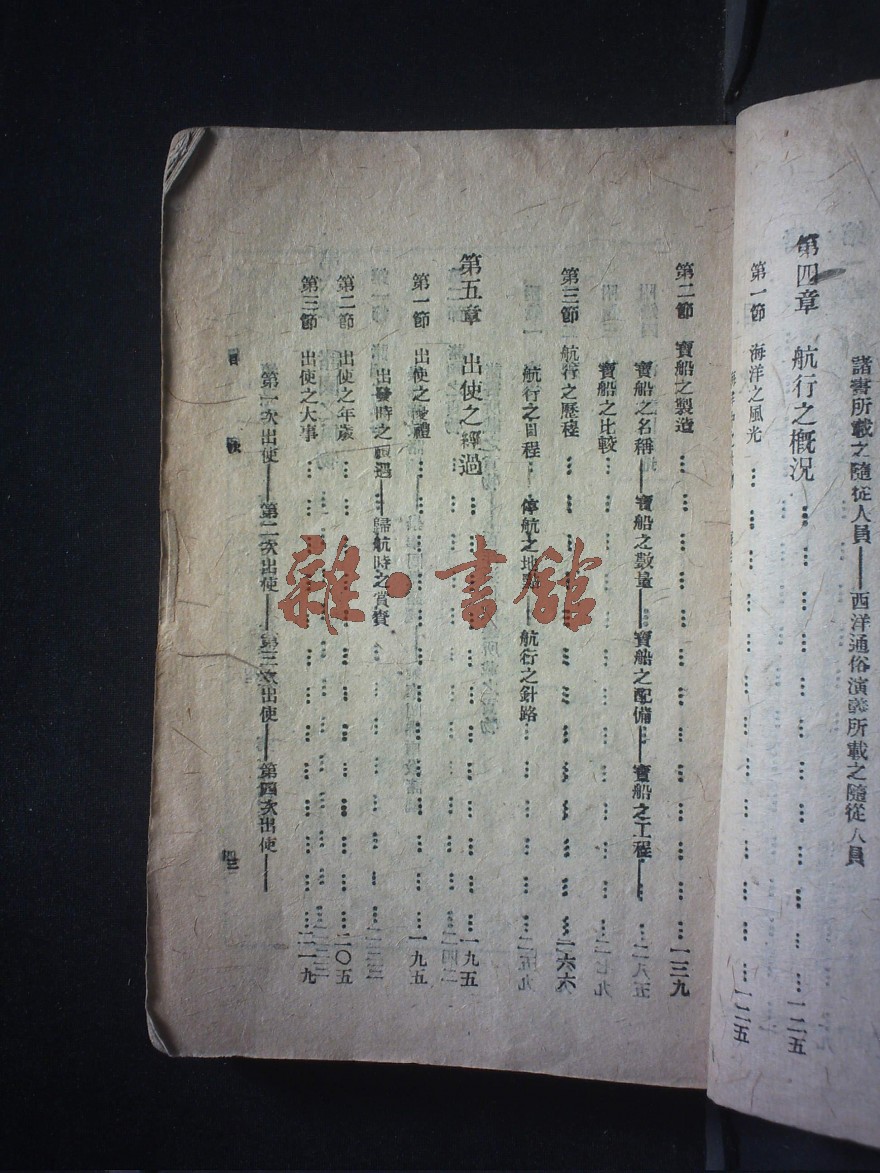 諸書所載之隨從人員——西洋通俗演義所載之隨從人員
第四章 航行之概況……一二五
第一節 海洋之風光……一二五
第二節 寶船之製造……一三九
寶船之名稱——寶船之數量——寶船之配備——寶船之工程——
寶船之比較
第三節 航行之歷程……一六六
航行之日程——停航之地點——航行之針路
第五章 出使之經過……一九五
第一節 出使之禮……一九五
出發時之遇——歸航時之賞賚
第二節 出使之年歲……二〇五
第三節 出使之大事……二一九
第一次出使——第二次出使——第三次出使——第四次出使——
目 次
雜·書館